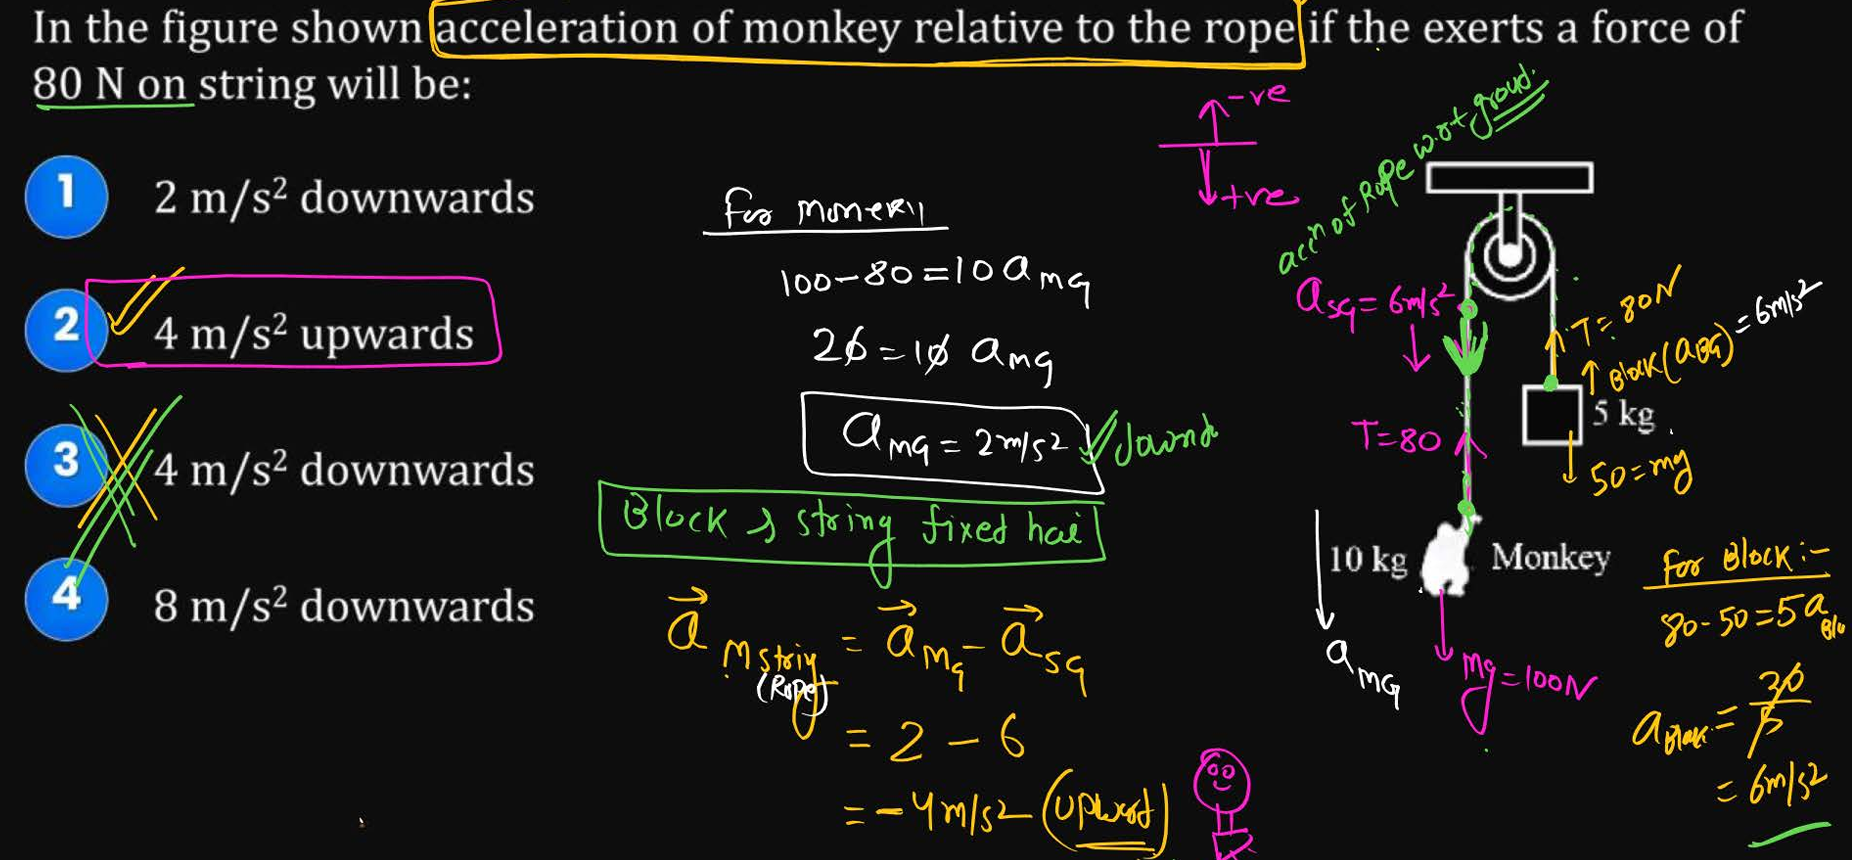 In the figure shown acceleration of monkey relative to the rope if the exerts a force of
80 N on string will be:
1 2 m/s² downwards
2 4 m/s² upwards
3 4 m/s² downwards
4 8 m/s² downwards
-ve
+ve
accⁿ of Rope w.r.t
For
100-80=10 a_MG
20=10 a_MG
a_MG = 2m/s²
Block & string fixed hai
a_M string = a_MG - a_SG
(Rope)
= 2 - 6
= -4 m/s² (upward)
a_SG = 6m/s²
T=80
T=80N
Block(a_BG) = 6m/s²
5 kg
50=mg
10 kg
Monkey
a_MG
mg=100N
For Block:-
80-50=5a
a_Block = 30/5
= 6m/s²